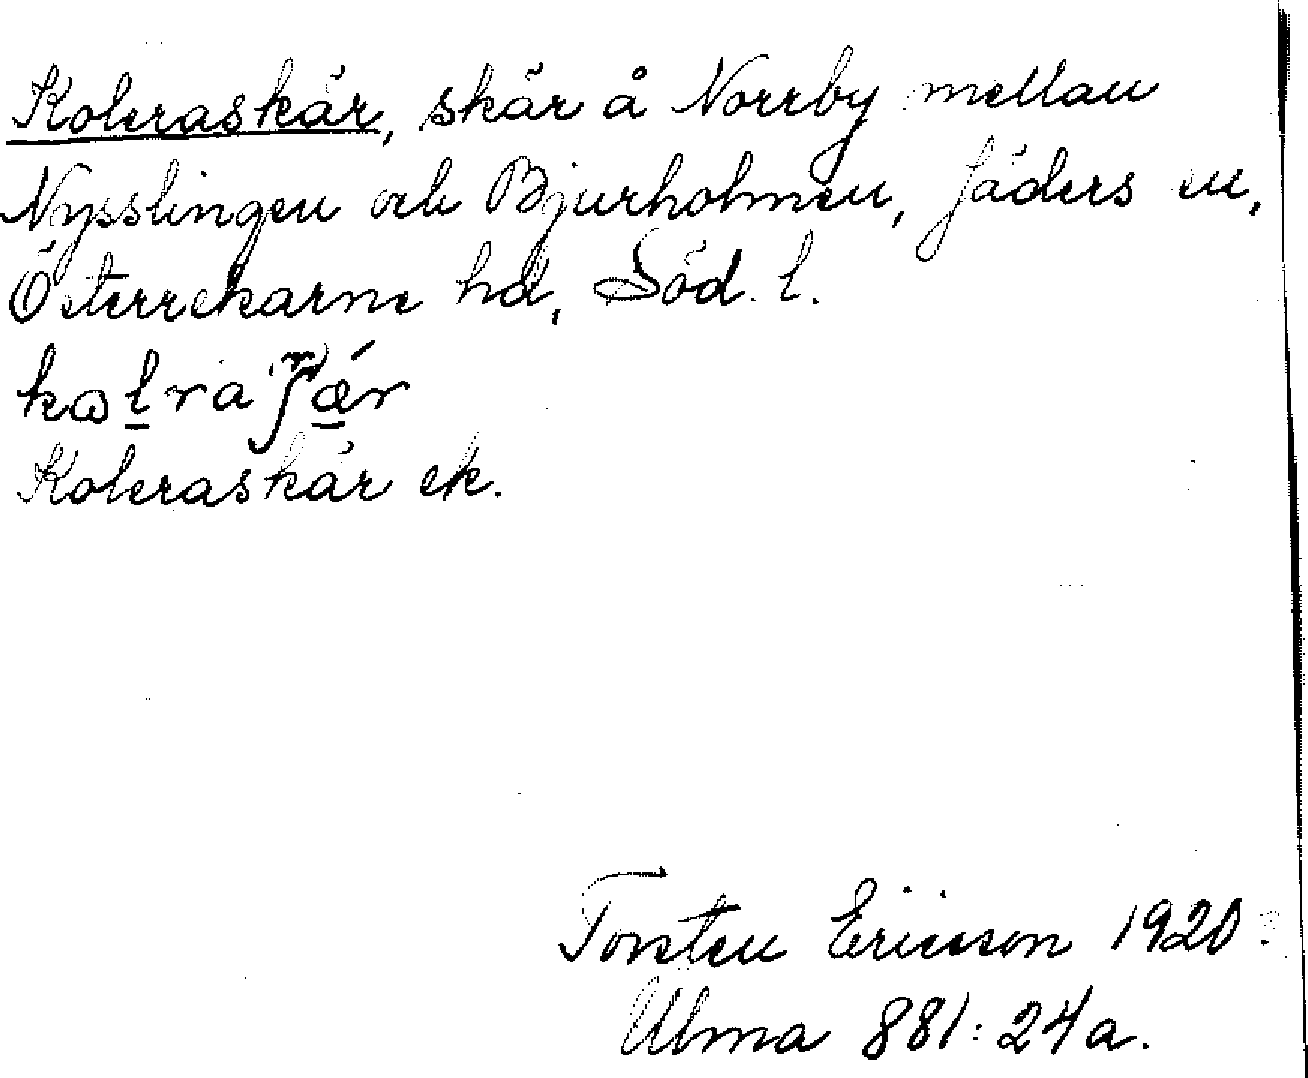 Koleraskär, skär å Norrby mellan
Nysslingen och Bjurholmen, Jäders sn,
Österrekarne hd, Söd. l.
Koleraskär ek.
Torsten Ericsson 1920
Ulma 881:24a.